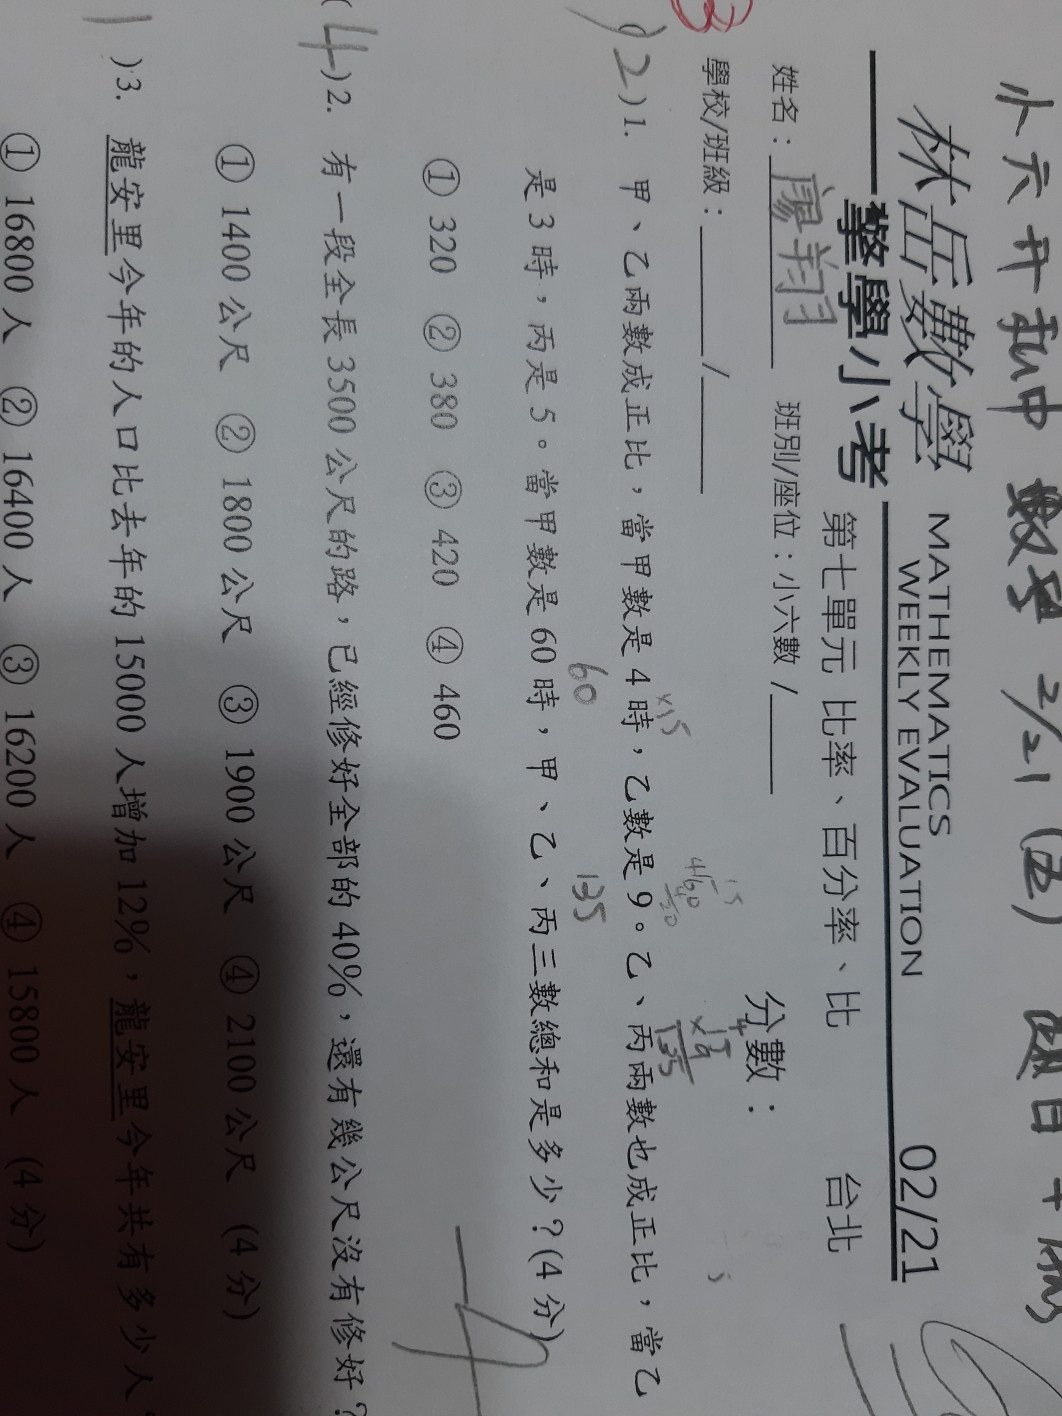 小六升私中 數學 2/21(五)
林岳數學
擎學小考
MATHEMATICS
WEEKLY EVALUATION
02/21
第七單元 比率、百分率、比
台北
姓名：廖翔
班別/座位：小六數 /
分數：
學校/班級： /
3
)2)1. 甲、乙兩數成正比，當甲數是 4 時，乙數是 9。乙、丙兩數也成正比，當乙
是 3 時，丙是 5。當甲數是 60 時，甲、乙、丙三數總和是多少？(4 分)
① 320 ② 380 ③ 420 ④ 460
×15
15
4/60
4
20
4
15
×9
135
60
135
(4)2. 有一段全長 3500 公尺的路，已經修好全部的 40%，還有幾公尺沒有修好？
① 1400 公尺 ② 1800 公尺 ③ 1900 公尺 ④ 2100 公尺 (4 分)
1)3. 龍安里今年的人口比去年的 15000 人增加 12%，龍安里今年共有多少人
① 16800 人 ② 16400 人 ③ 16200 人 ④ 15800 人 (4 分)
-4